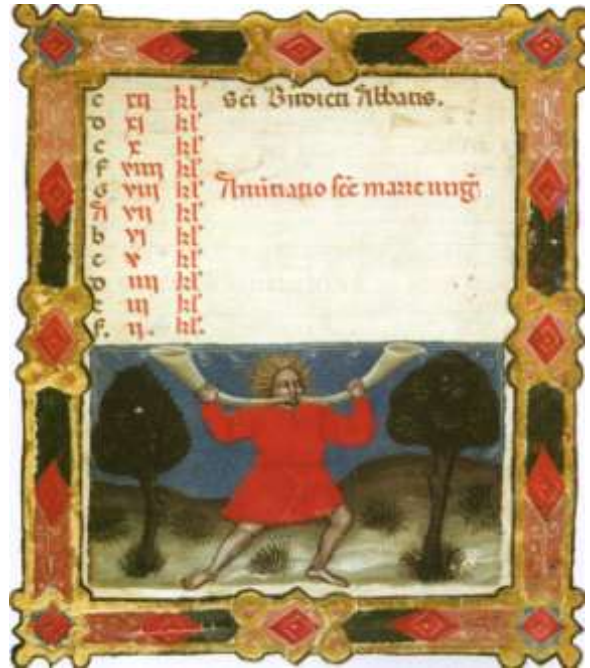 c xij kl' Sci Bñdicti Abbatis.
d xj kl'
e x kl'
f viiij kl'
g viij kl' Anũtiatio scẽ marie uirg̃.
A vij kl'
b vj kl'
c v kl'
d iiij kl'
e iij kl'
f. ij. kl'.